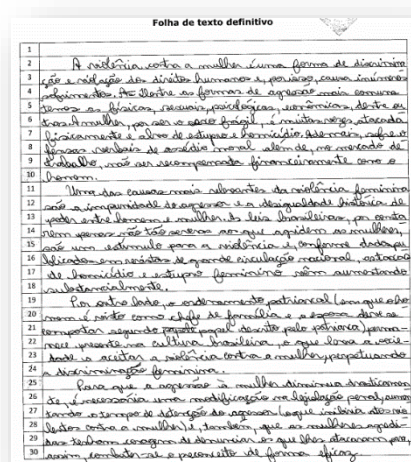 Folha de texto definitivo
1
2 A violência contra a mulher é uma forma de discrimina
3 ção e violação dos direitos humanos e, por isso, causa inúmeros
4 sofrimentos. Dentre as formas de agressão mais comuns
5 temos as físicas, sexuais, psicológicas, econômicas, dentre ou
6 tras. A mulher, por ser o sexo frágil, é muitas vezes atacada
7 fisicamente e alvo de estupro e homicídio. Ademais, sofre o
8 verbais de assédio moral além de, no mercado de
9 trabalho, não ser recompensada financeiramente como o
10 homem.
11 Uma das causas mais relevantes da violência feminina
12 são a impunidade do agressor e a desigualdade histórica de
13 poder entre homem e mulher. As leis brasileiras, por conta
14 rem penas não tão severas aos que agridem as mulheres,
15 são um estímulo para a violência e, conforme dados pu
16 blicados em revistas de grande circulação nacional, os
17 de homicídio e estupro feminino vêm aumentando
18 substancialmente.
19 Por outro lado, o ordenamento patriarcal (em que o ho
20 mem é visto como chefe de família e a esposa deve se
21 comportar segundo papel descrito pelo patriarca) perma-
22 nece presente na cultura brasileira, o que leva a socie-
23 dade a aceitar a violência contra a mulher, perpetuando
24 a discriminação feminina.
25 Para que a agressão à mulher diminua drasticamen
26 te, é necessária uma modificação na legislação penal, aumen
27 tando o tempo de detenção do agressor (o que inibiria atos vio
28 lentos contra a mulher) e, também, que as mulheres agredi-
29 das tenham coragem de denunciar os que lhes atacaram para,
30 assim, combater-se o preconceito de forma eficaz.